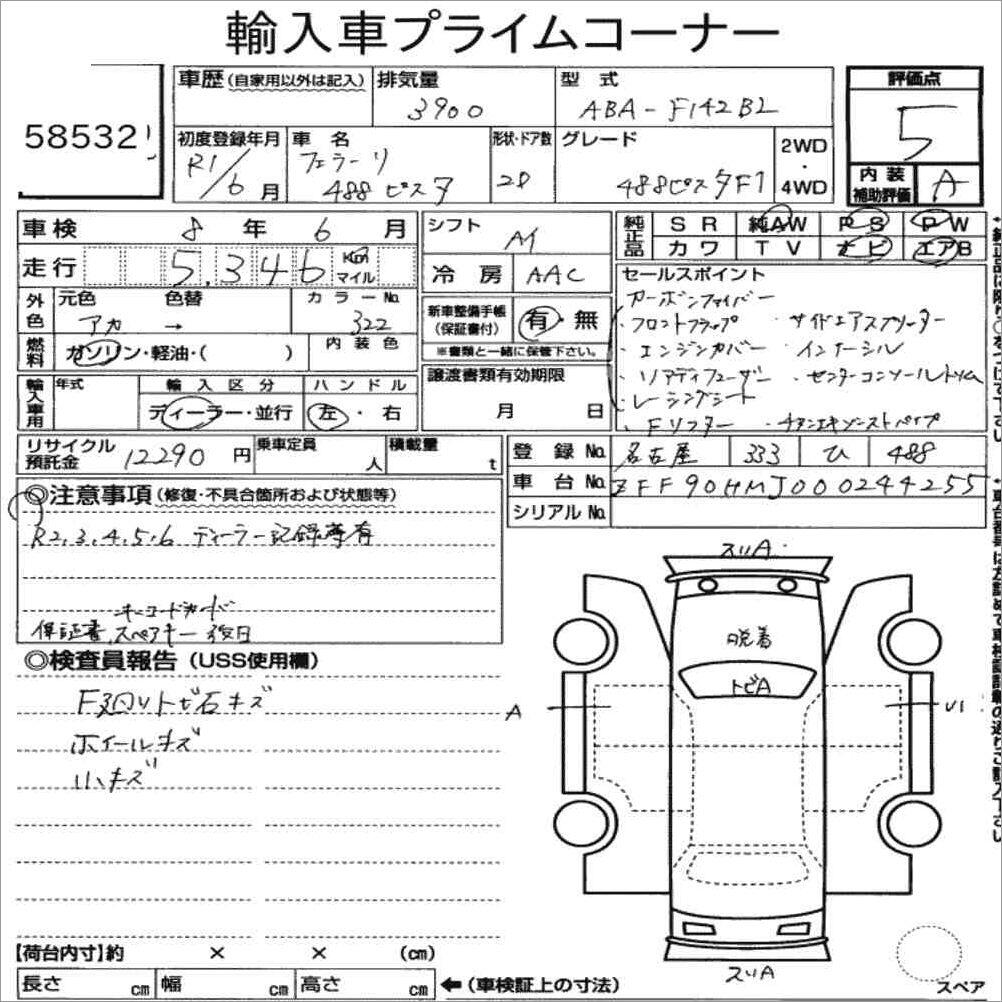 輸入車プライムコーナー
58532
車歴(自家用以外は記入) 排気量 3900 型式 ABA-F142B2 評価点 5
初度登録年月 R1/6月 車名 フェラーリ 488ピスタ 形状・ドア数 2D グレード 488ピスタF1 2WD・4WD 内装補助評価 A
車検 8年6月 シフト AT 純正品 SR 純AW PS PW
カワ TV ナビ エアB
走行 5,346 Km マイル 冷房 AAC
外色 元色 アカ → 色替 カラーNo. 322
燃料 ガソリン・軽油・( ) 内装色
新車整備手帳(保証書付) 有・無
※書類と一緒に保管下さい。
輸入車用 年式 輸入区分 ディーラー・並行 ハンドル 左・右
譲渡書類有効期限 月 日
セールスポイント
カーボンファイバー
・フロントフラップ ・サイドエアスプリッター
・エンジンカバー ・インナーシル
・リアディフューザー ・センターコンソールトリム
・レーシングシート
・Fリフター ・チタンエキゾーストパイプ
リサイクル預託金 12290円 乗車定員 人 積載量 t
登録No. 名古屋 333 ひ 488
車台No. ZFF90HMJ000244255
シリアルNo.
◎注意事項(修復・不具合箇所および状態等)
R2.3.4.5.6 ディーラー記録簿有
キーコードカード
保証書、スペアキー 後日
◎検査員報告(USS使用欄)
F廻りトビ石キズ
ホイールキズ
小キズ
スリA
脱着
トビA
A
U1
スリA
スペア
【荷台内寸】約 × × (cm)
長さ cm 幅 cm 高さ cm ←(車検証上の寸法)